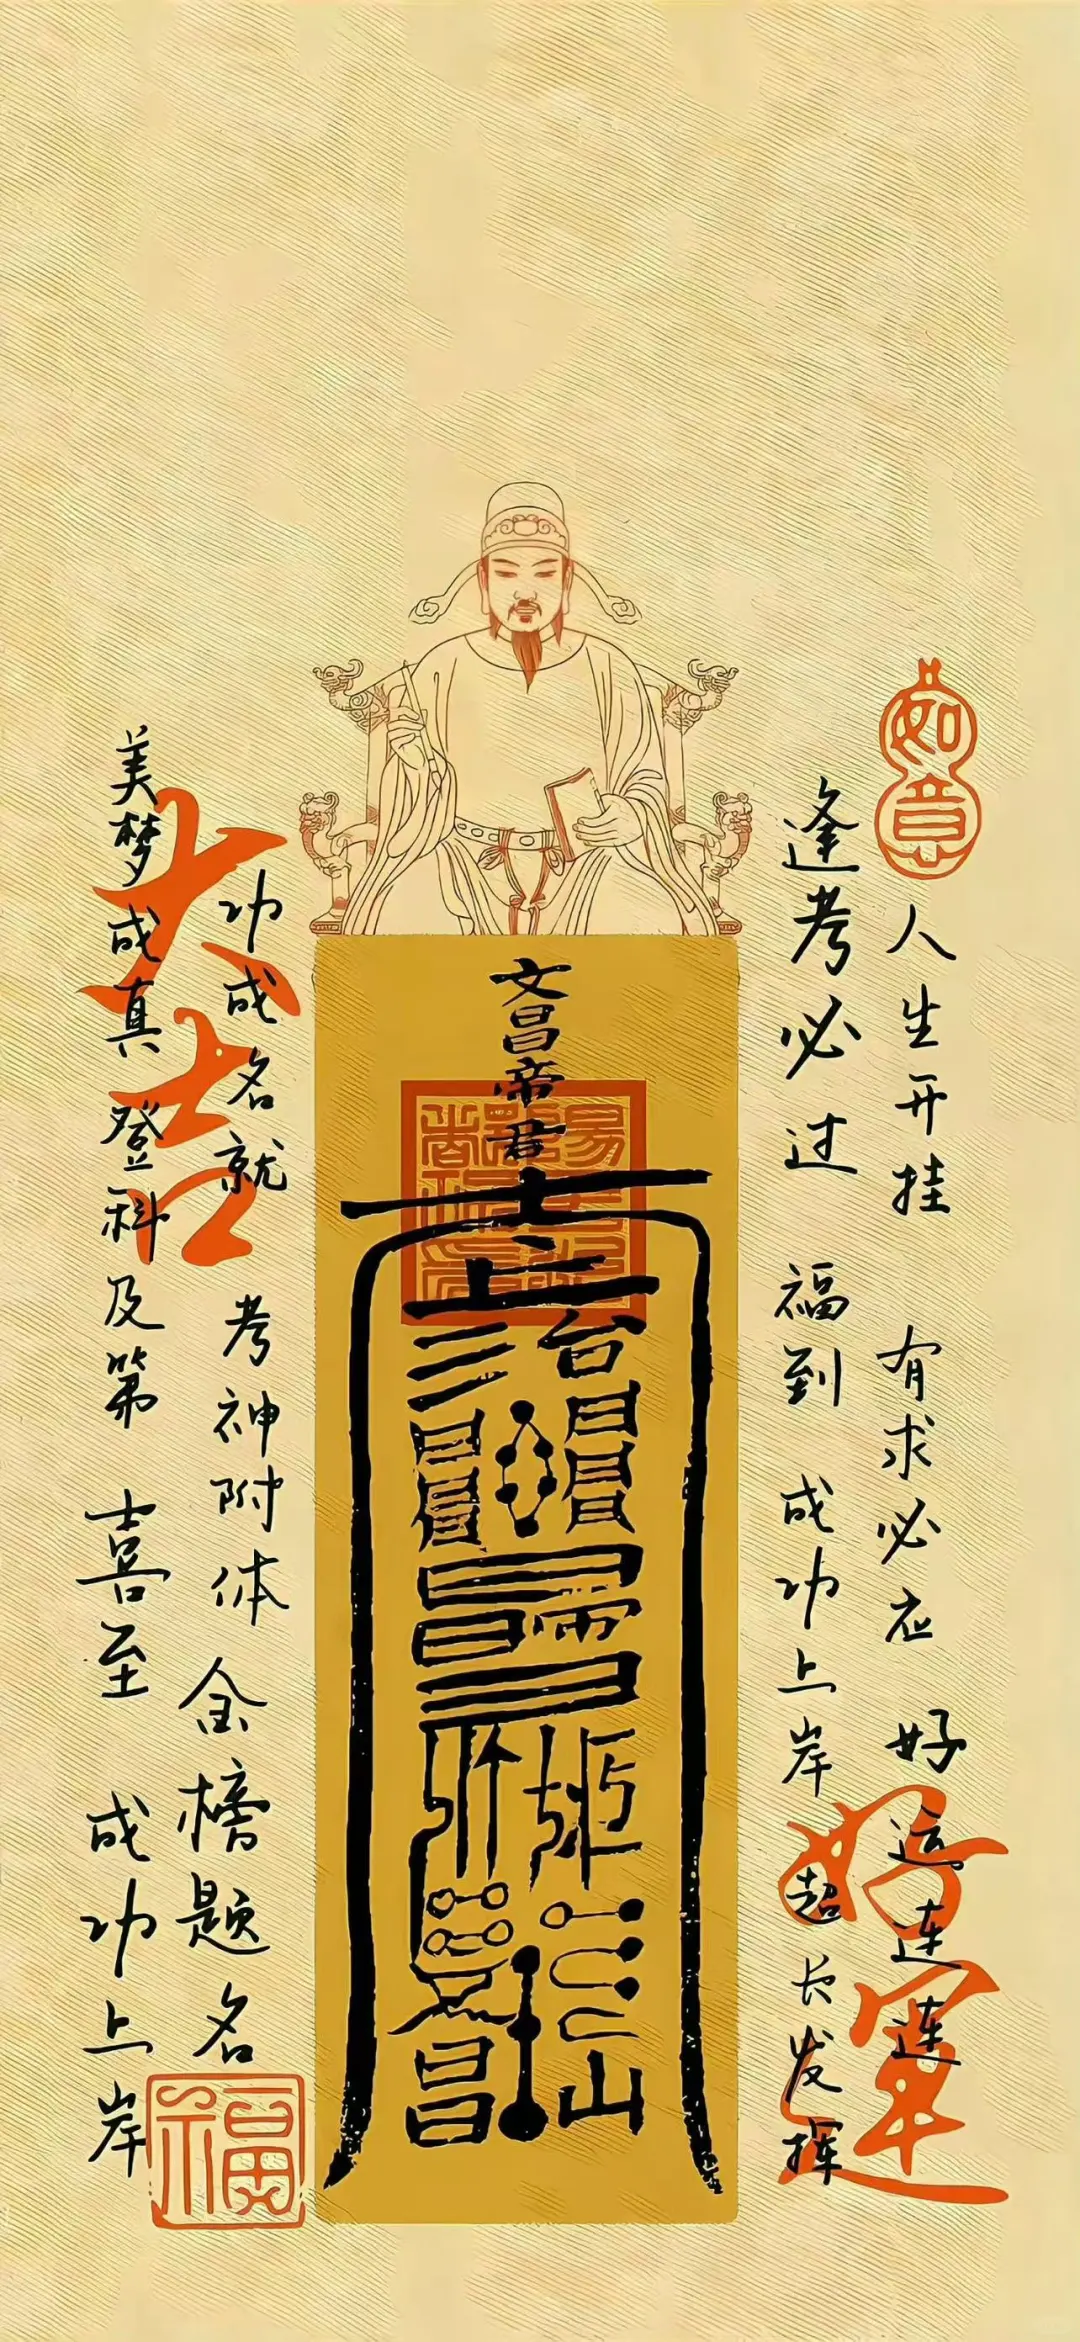 如意
人生开挂 有求必应 好运连连
逢考必过 福到 成功上岸 超长发挥
好运
文昌帝君
功成名就 考神附体 金榜题名
美梦成真 登科及第 喜至 成功上岸
大吉
福